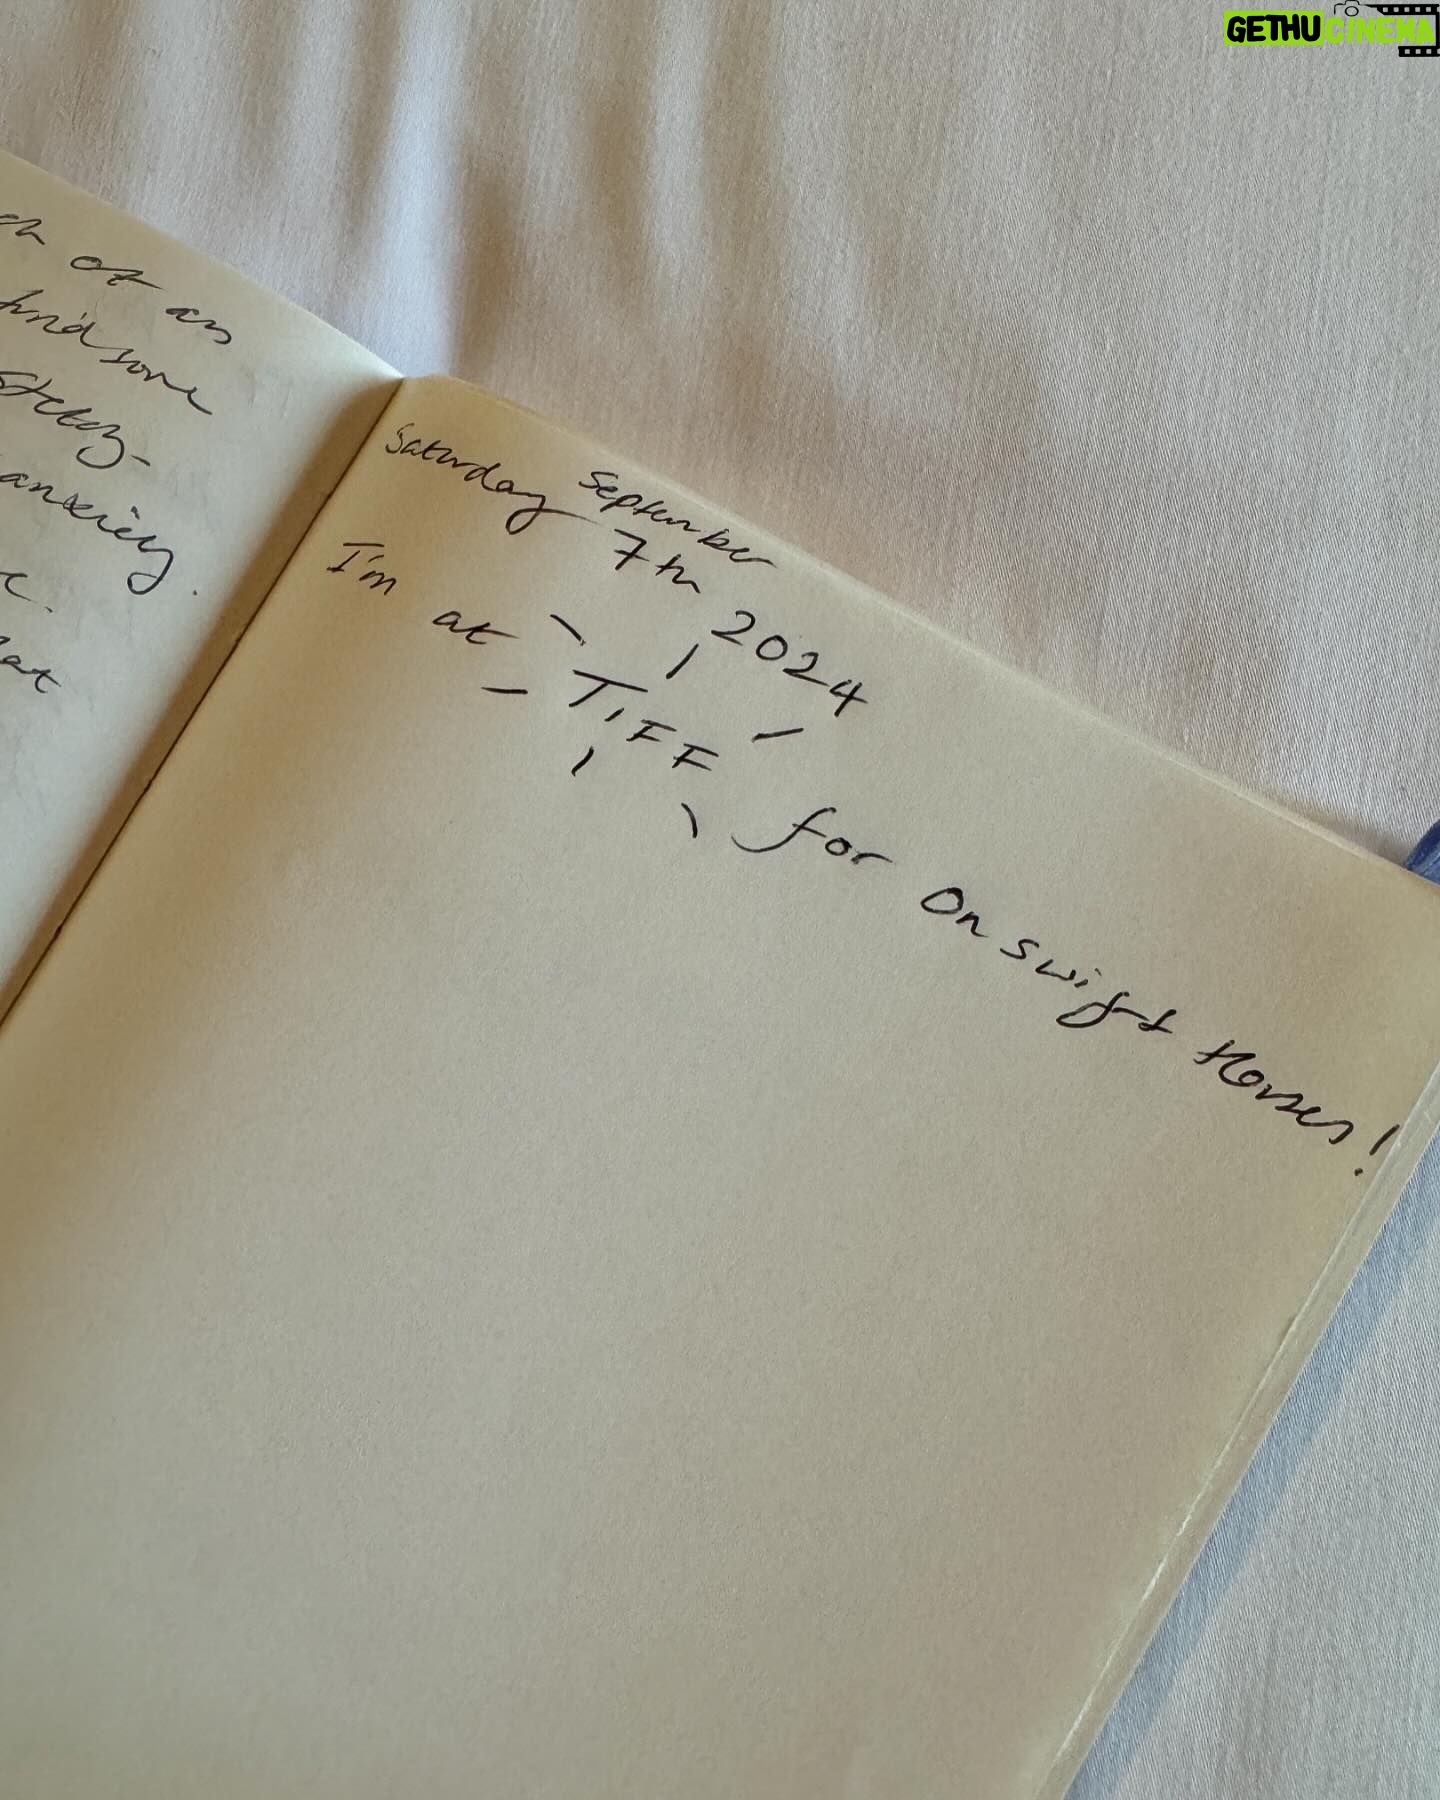 GETHUCINEMA
of an
handsome
anxiety.
at
Saturday September
7th 2024
I'm at TIFF for On Swift Horses!